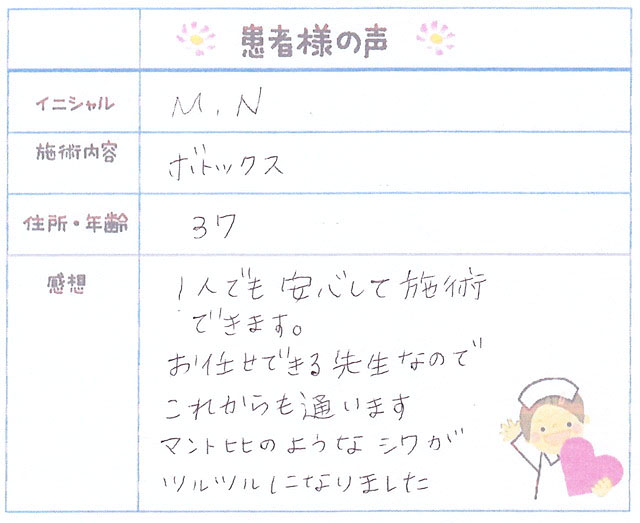 患者様の声
イニシャル M.N
施術内容 ボトックス
住所・年齢 37
感想 1人でも安心して施術
できます。
お任せできる先生なので
これからも通います
マントヒヒのようなシワが
ツルツルになりました